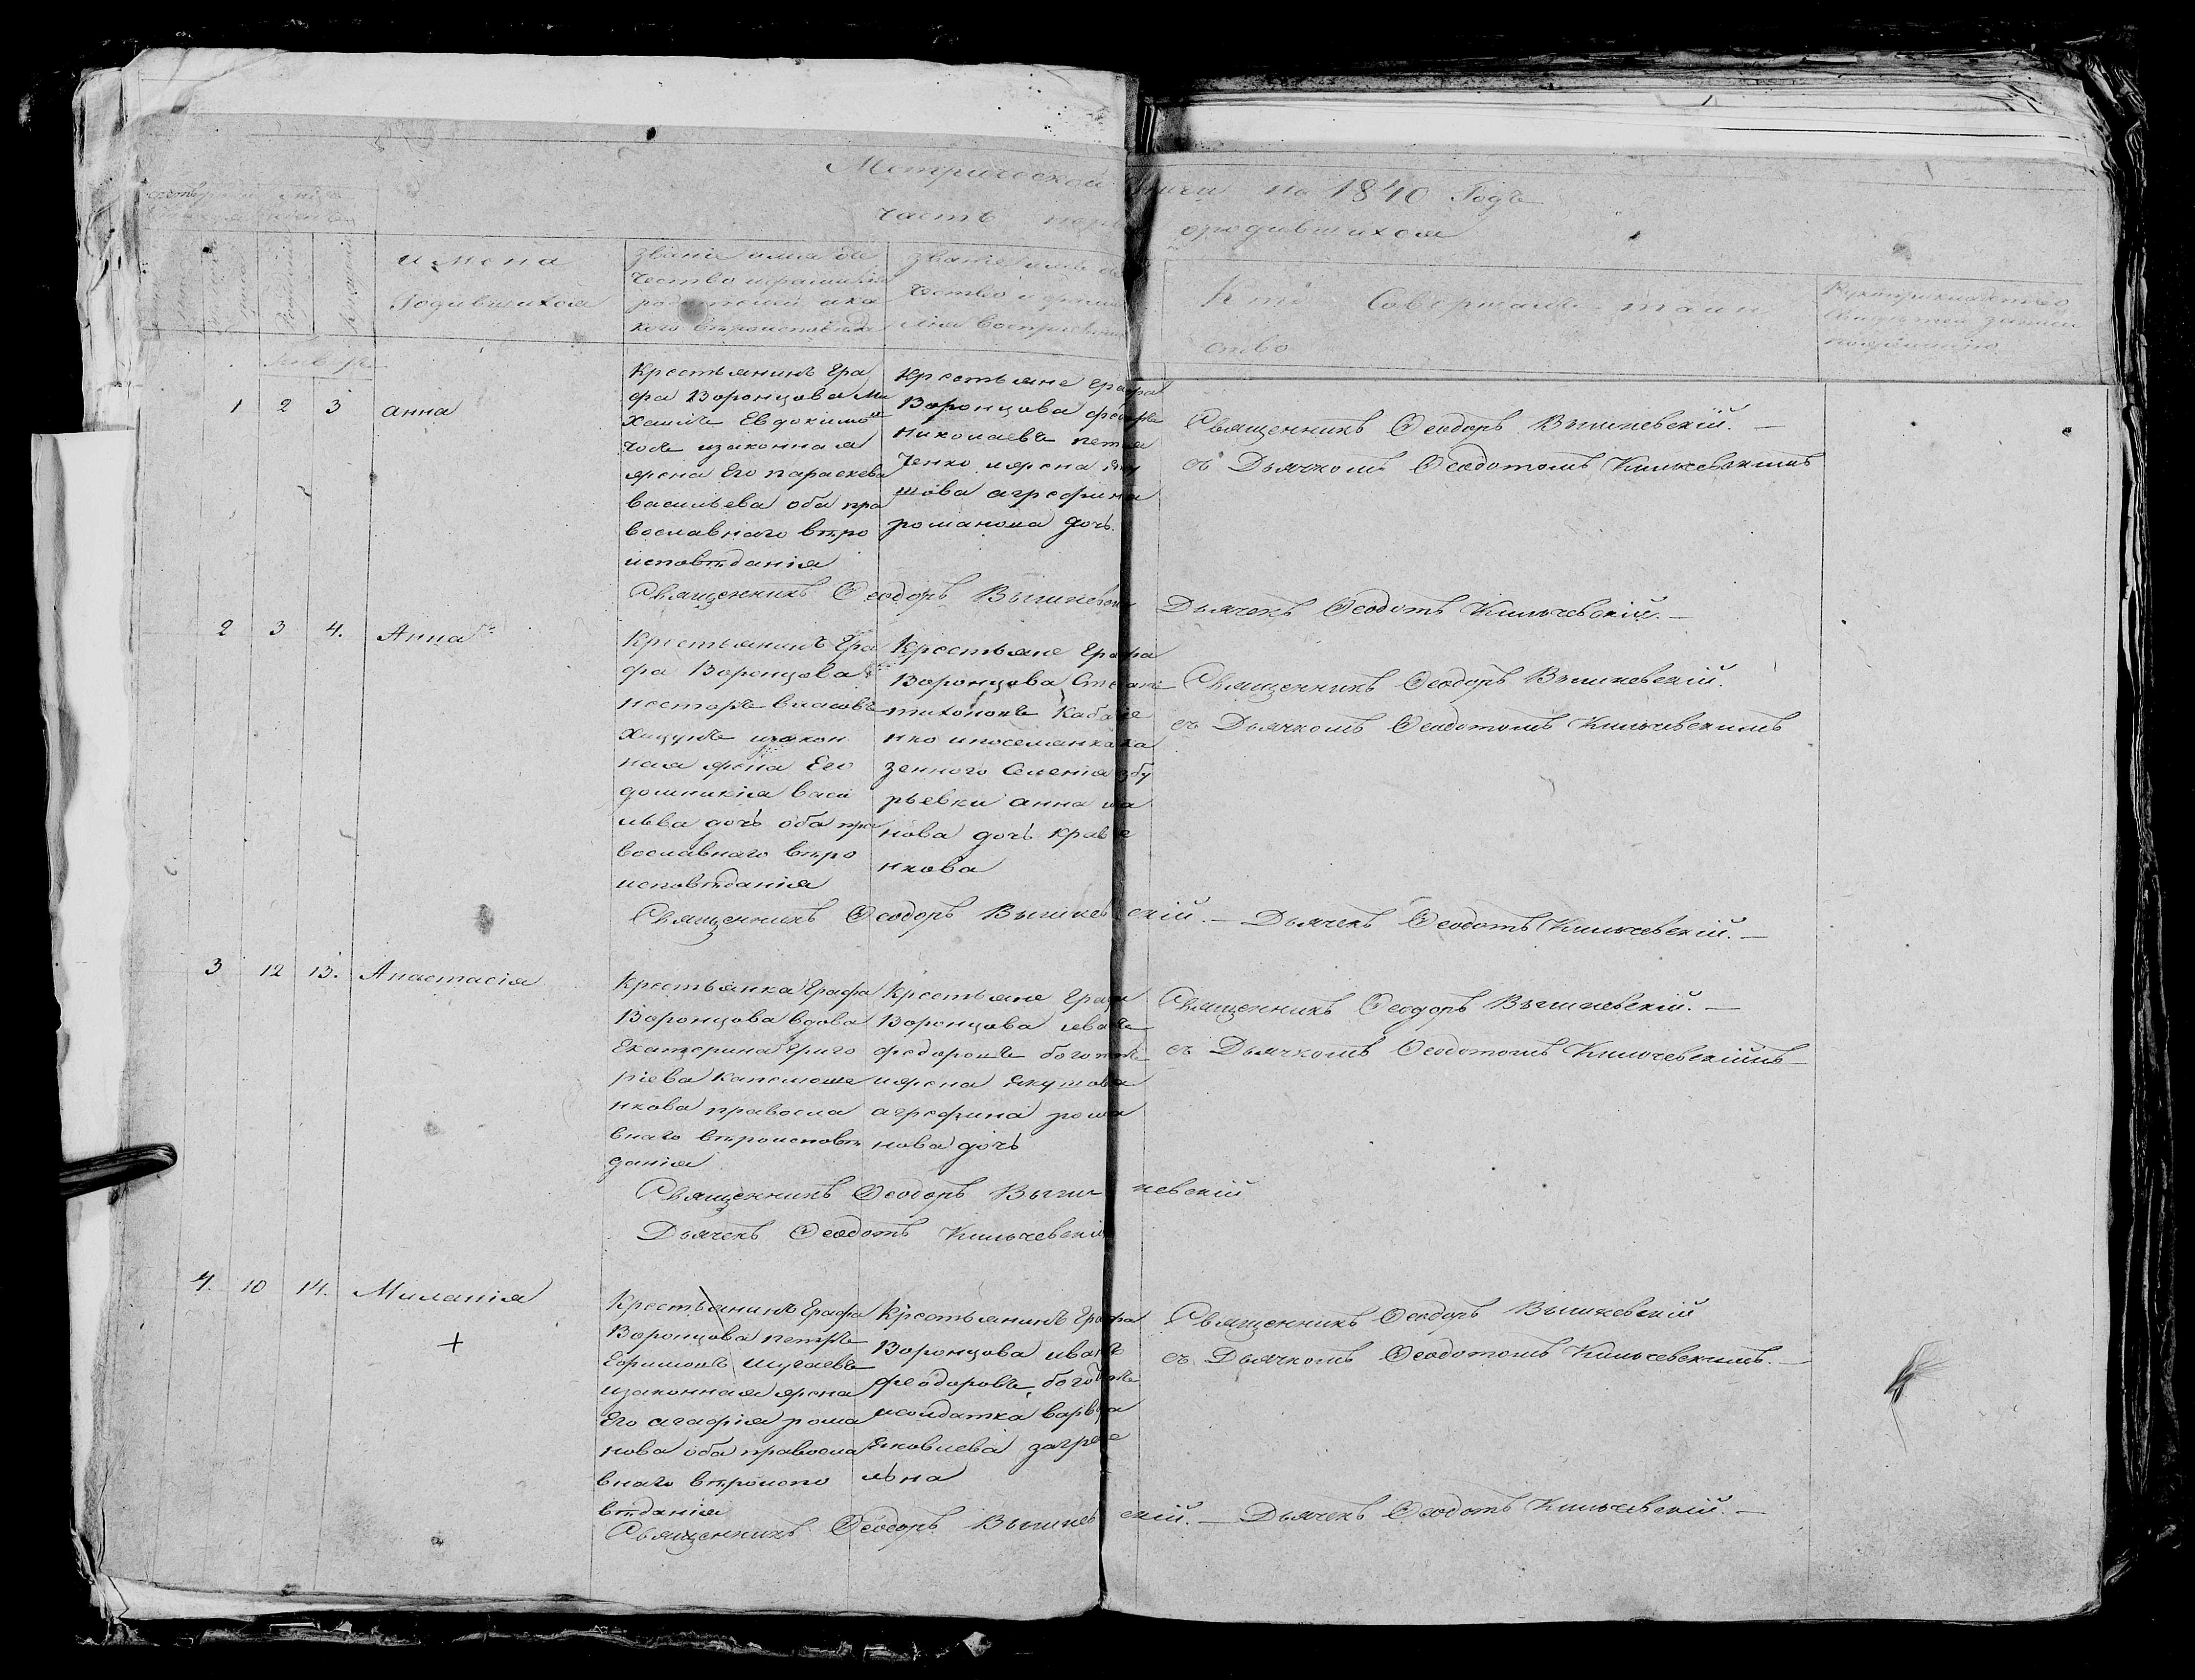 Метрической книги на 1840 Годъ
часть пер
ородившихся
имена
Родившихся
званіе имя оте
чество ифамилія
родителей ика
кого вѣроисповѣда
званіе имя оте
чество ифами
лія воспріемни
Кто Совершалъ таин
ство
1 2 3 анна
Крестьянинъ Гра
фа Воронцова Ми
хаилъ Евдокимо
изаконная
жена Его параскева
васильева оба пра
вославнаго вѣро
исповѣданія
Крестьяне графа
Воронцова федоръ
николаевъ
ченко ижена яку
шова агрефина
романова дочь.
Священникъ Ѳеодоръ Вышневскій. —
съ Дьячкомъ Ѳеодотомъ Кильчевскимъ
Священникъ Ѳеодоръ Вышневскій
Дьячекъ Ѳеодотъ Кильчевскій. —
2 3 4. Анна
Крестьянинъ Гра
фа Воронцова
несторъ власовъ
изакон
ная жена Его
домникія васи
льва дочь оба пра
вославнаго вѣро
исповѣданія
Крестьяне Графа
Воронцова Степанъ
тихоновъ Кабаче
нко ипоселянка ка
зенного Селенія збу
рьевки анна ива
нова дочь краве
нкова
Священникъ Ѳеодоръ Вышневскій.
съ Дьячкомъ Ѳеодотомъ Кильчевскимъ
Священникъ Ѳеодоръ Вышневскій. — Дьячекъ Ѳеодотъ Кильчевскій. —
3 12 13. Анастасія
Крестьянка Графа
Воронцова вдова
Екатерина Григо
ріева капелюше
нкова правосла
внаго вѣроисповѣ
данія
Крестьяне Графа
Воронцова иванъ
федоровъ
ижена якушова
агрефина рома
нова дочь
Священникъ Ѳеодоръ Вышневскій. —
съ Дьячкомъ Ѳеодотомъ Кильчевскимъ
Священникъ Ѳеодоръ Вышневскій
Дьячекъ Ѳеодотъ Кильчевскій
4. 10 14. Миланія
+
Крестьянинъ Графа
Воронцова петръ
Ефимовъ Шугаевъ
изаконная жена
Его агафія рома
нова оба правосла
внаго вѣроиспо
вѣданія
Крестьянинъ Графа
Воронцова иванъ
феодоровъ
исолдатка варвара
яковлева загре
льна
Священникъ Ѳеодоръ Вышневскій
съ Дьячкомъ Ѳеодотомъ Кильчевскимъ. —
Священникъ Ѳеодоръ Вышневскій. — Дьячекъ Ѳеодотъ Кильчевскій. —